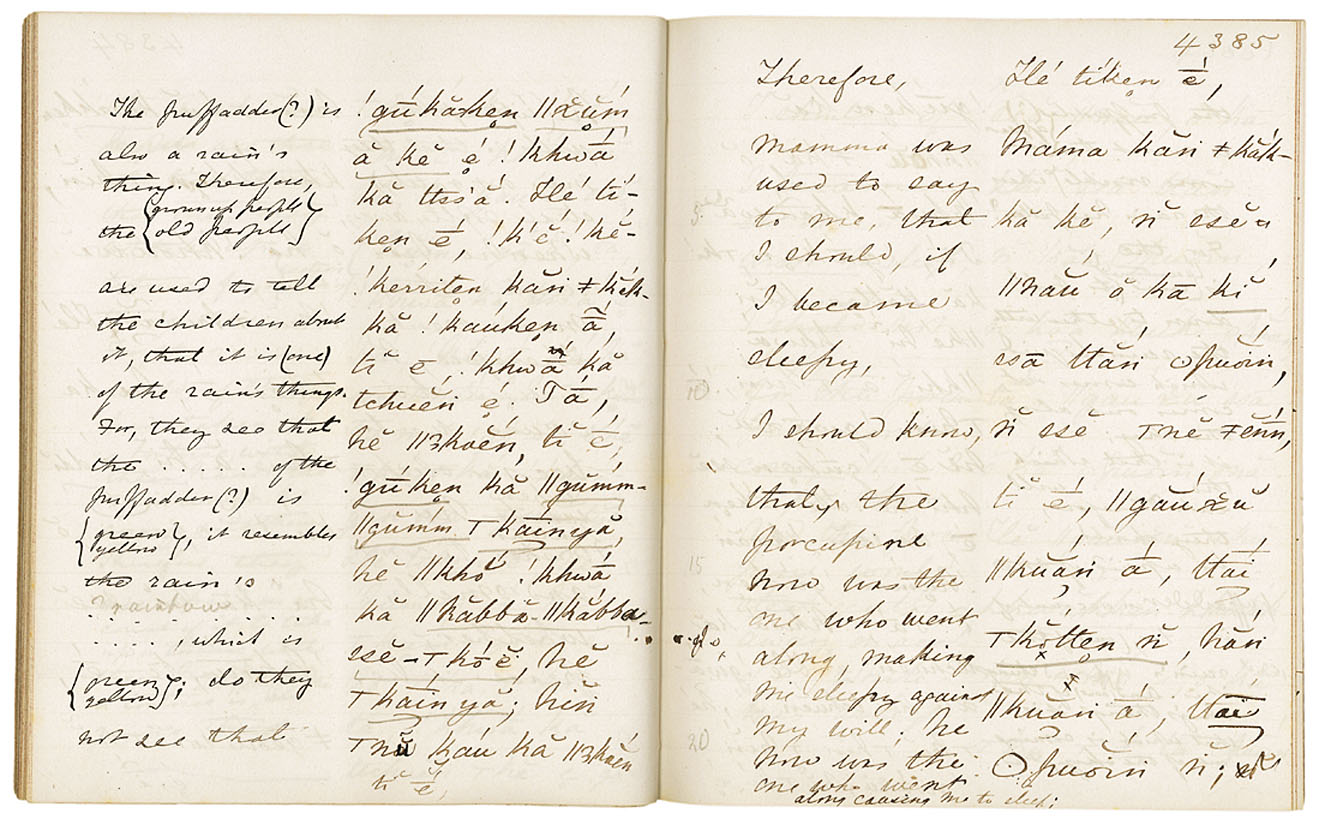 The puffadder(?) is
also a rain's
thing. Therefore,
the {grown up people
old people}
are used to tell
the children about
it, that it is (one)
of the rain's things.
For, they see that
the ..... of the
puffadder(?) is
{green
yellow}, it resembles
the rain's
? rainbow
....., which is
{green
yellow}; do they
not see that
!gū́kărken̥ ||χŭḿ
ă kĕ é ! khwā́
kă ttss'ă. Hé tí-
ken̥ ḗ, !k'é !kĕ-
!kérriten̥ kăń ǂ kăk-
kă ! kăúken̥ ā́,
tĭ ē ! khwā́ kă
tchuĕ́n é. Tā́,
hĕ ||ʒkoĕń, tĭ ḗ,
!gū́ken̥ kă ||gŭḿm-
||gŭḿm. T kāı̆nyă,
hĕ ||khŏ́ !khwā́
kă ||kăbbă-||kăbba-
ssĕ-T kŏ́ĕ, hĕ
T kāı̆n yă; hĭń
kăú kă ||ʒkoĕń
tĭ ḗ,
4385
Therefore,
mamma was
used to say
to me, that
I should, if
I became
sleepy,
I should know,
that, the
porcupine
now was the
one who went
along, making
me sleepy against
my will; he
now was the
one who went
along causing me to sleep;
Hé tíken̥ ḗ,
Máma kăń ǂ kăk-
kă kĕ, ń̆ ssĕ
||nău ŏ kā kı̆́
ssā ttăń ʘpuŏiń,
ń̆ ssĕ T nĕ ǂĕńn,
tĭ ḗ, ||găúχŭ
||kuăń ā́, ttāı́
T kŏ́tten̥ ń̆, hăń
||kuăń ā́, ttāı́
ʘpuŏiń ń̆;
5
10
15
20